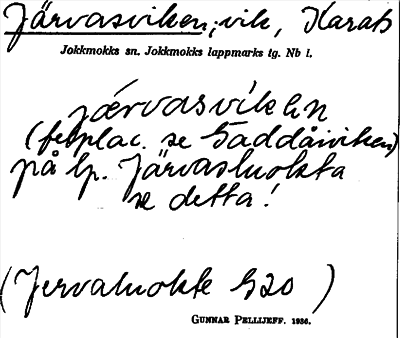 Järvasviken, vik, Karats
Jokkmokks sn. Jokkmokks lappmarks tg. Nb l.
jærvasvikən
(felplac. se Gäddåiviken)
på lp. Järvasluokta
se detta!
(Jervaluokte G20)
GUNNAR PELLIJEFF. 1936.